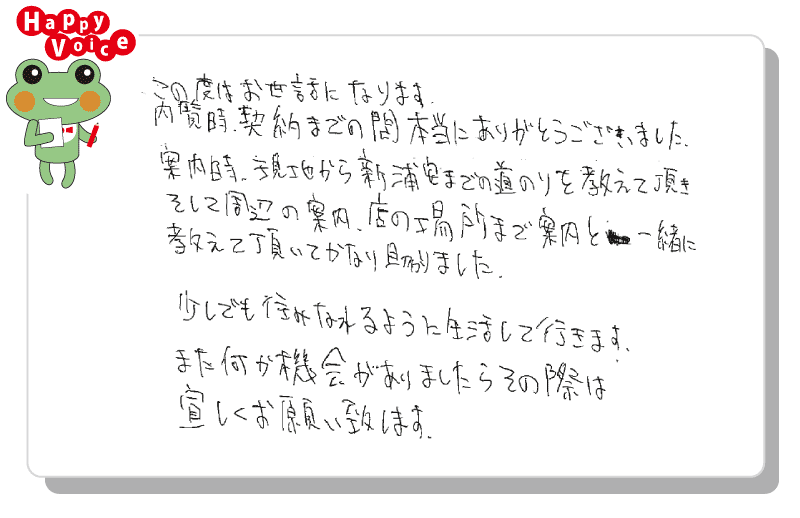 Happy
Voice
この度はお世話になります.
内覧時.契約までの間本当にありがとうございました.
案内時.現地から新浦安までの道のりを教えて頂き
そして周辺の案内.店の場所まで案内と一緒に
教えて頂いてかなり助かりました.
少しでも住みなれるように生活して行きます.
また何か機会がありましたらその際は
宜しくお願い致します.